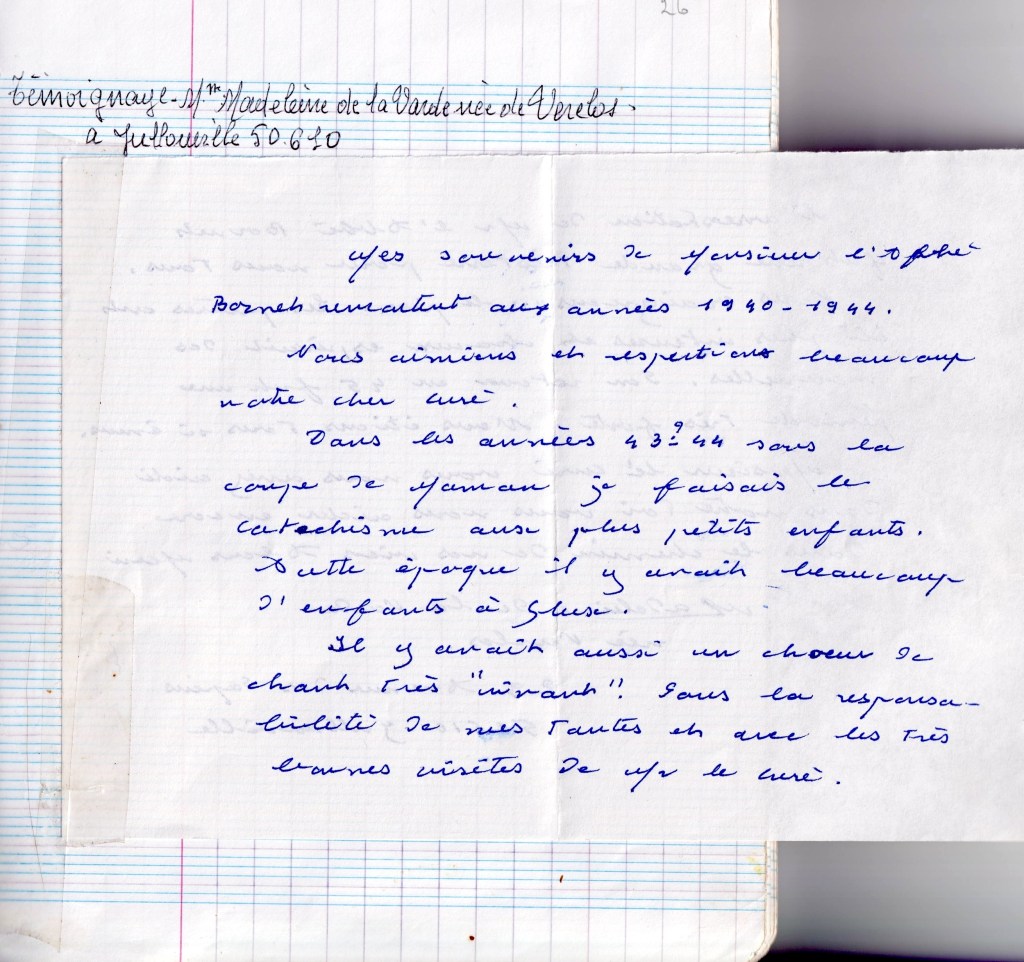 26
Témoignage - Mme Madeleine de la Varde née de Verclos.
à Jullouville 50.610
Mes souvenirs de Monsieur l'Abbé
Bornet remontent aux années 1940-1944.
Nous aimions et respections beaucoup
notre cher curé.
Dans les années 43 à 44 sous la
coupe de Maman je faisais le
catechisme aux plus petits enfants.
A cette époque il y avait beaucoup
d'enfants à Glux.
Il y avait aussi un choeur de
chant très "vivant". Sous la responsa-
bilité de mes Tantes et avec les très
bonnes visites de Mr le curé.